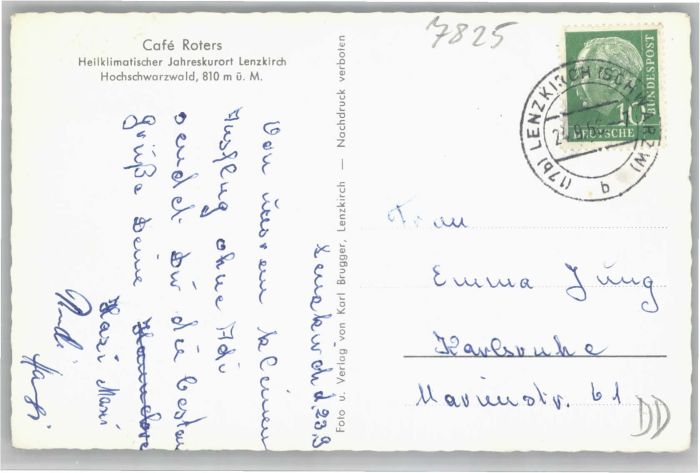 7825
Café Roters
Heilklimatischer Jahreskurort Lenzkirch
Hochschwarzwald, 810 m ü. M.
Lenzkirch d. 23.9
Von unserem kleinen
Ausflug ohne Adi
sendet Dir die besten
Grüße Deine
Hasi Maxi
Foto u. Verlag von Karl Brugger, Lenzkirch — Nachdruck verboten
DEUTSCHE
BUNDESPOST
10
(17b) LENZKIRCH (SCHWARZW)
b
Frau
Emma Jung
Karlsruhe
Marienstr. 61
DD